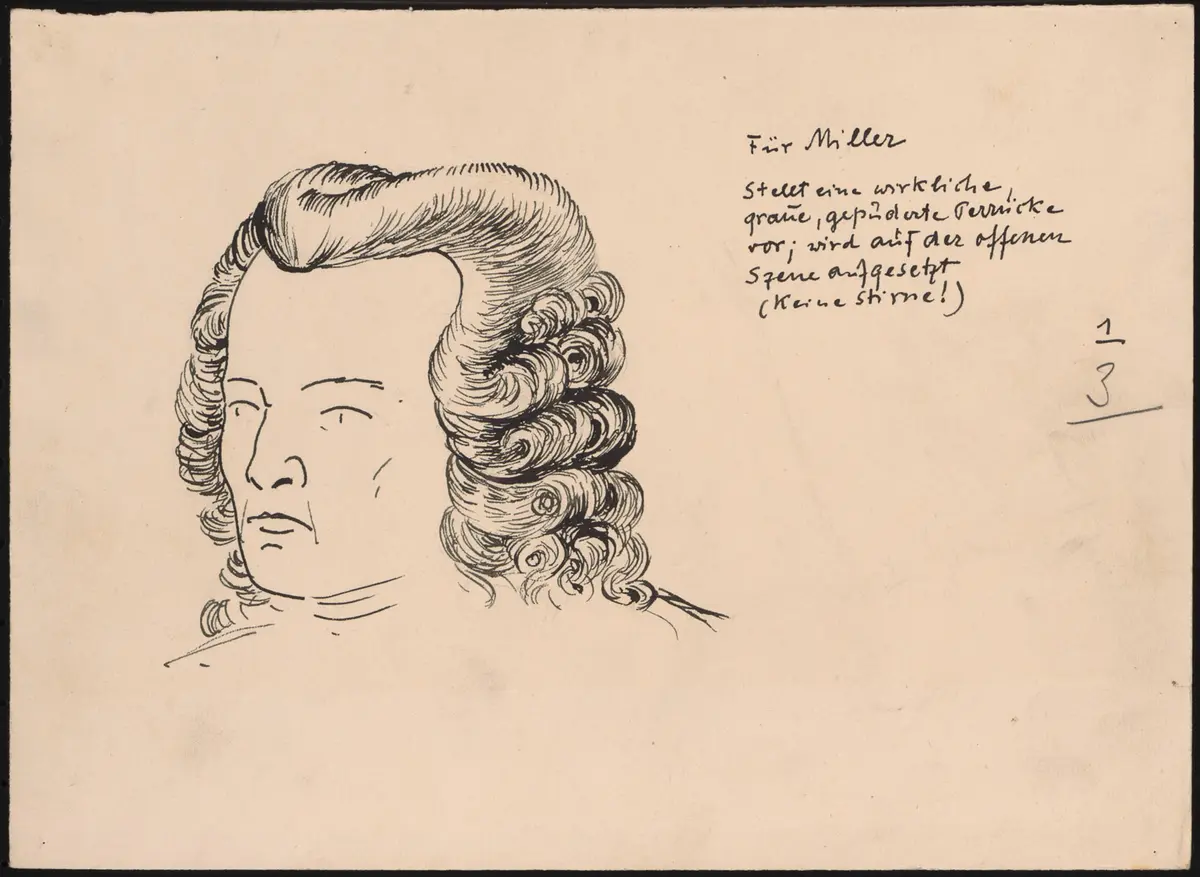 Für Miller
Stellt eine wirkliche,
graue, gepüderte Perrücke
vor; wird auf der offenen
Szene aufgesetzt
(Keine Stirne!)
1
3